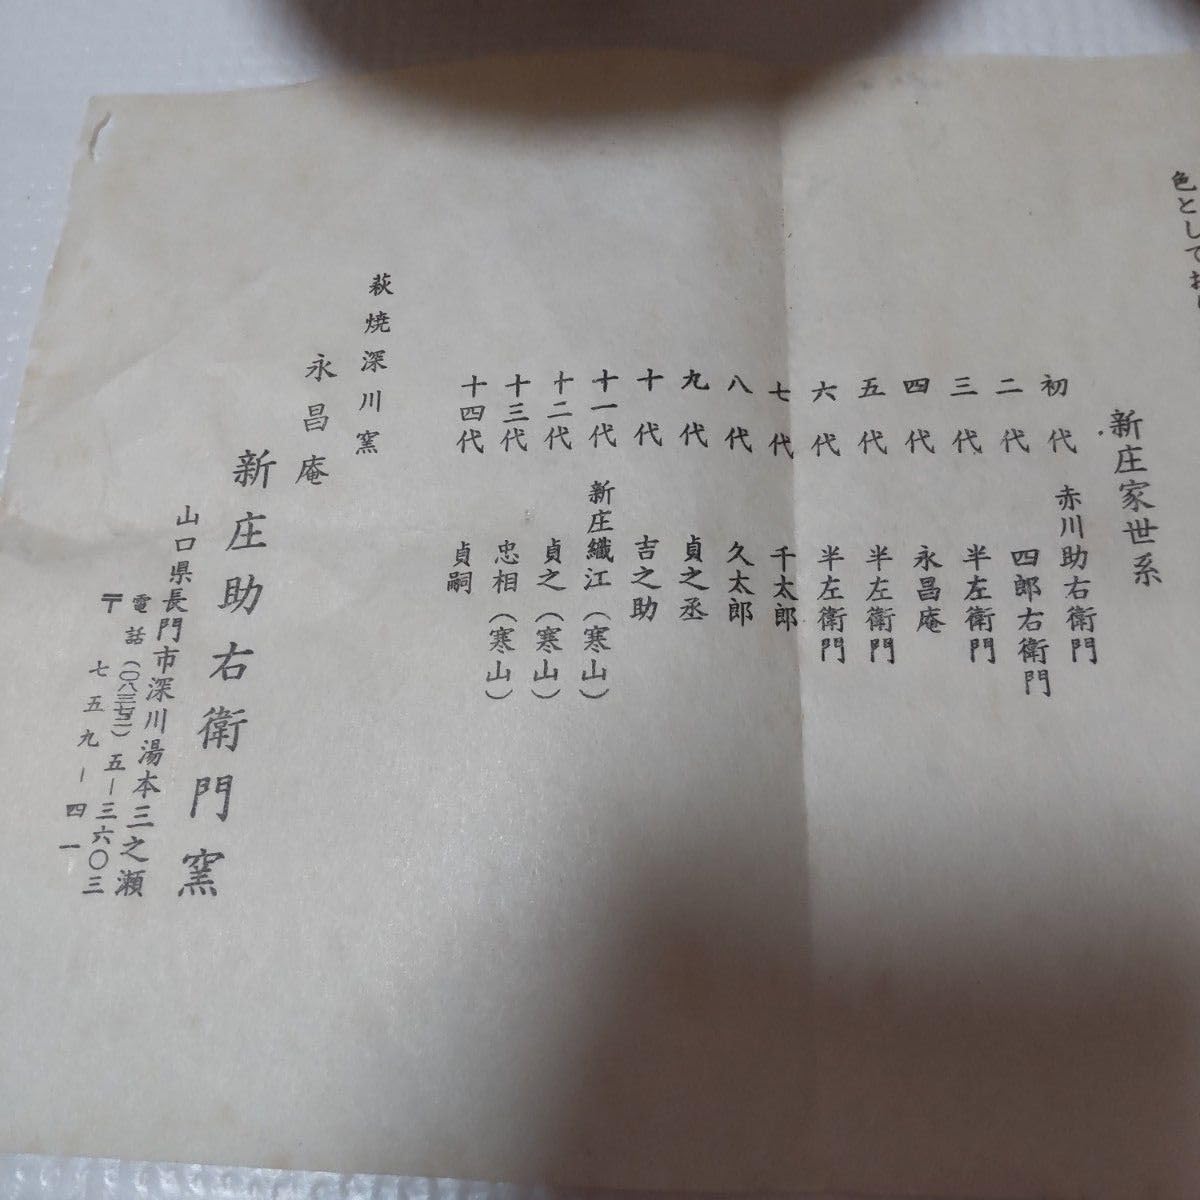 色としてお
新庄家世系
初代 赤川助右衛門
二代 四郎右衛門
三代 半左衛門
四代 永昌庵
五代 半左衛門
六代 半左衛門
七代 千太郎
八代 久太郎
九代 貞之丞
十代 吉之助
十一代 新庄織江（寒山）
十二代 貞之（寒山）
十三代 忠相（寒山）
十四代 貞嗣
萩焼深川窯
永昌庵
新庄助右衛門窯
山口県長門市深川湯本三之瀬
電話（〇八三七二）五―三六〇三
〒七五九―四一